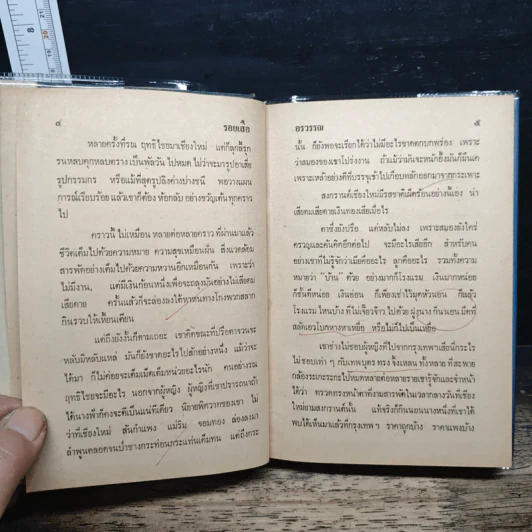 ๔ รอยเสือ
หลายครั้งที่รณ ฤทธิไชยมาเชียงใหม่ แต่ก็ลุกลี้รุก
รนหลบคุกหลบคราง เป็นพัลวัน ไปหมด ไม่ว่าจะมารูปอาเสี่ย
รูปกรรมกร หรือแม้ที่สุดรูปลิงค่างบ่างชนี พอวางแผน
การณ์เรียบร้อย แล้วเขาก็ต้อง ห้อกลับ อย่างขวัญเต้นทุกคราว
ไป
คราวนี้ ไม่เหมือน หลายต่อหลายคราว ที่ผ่านมาแล้ว
ชีวิตเต็มไปด้วยความหมาย ความสุขเหมือนฝัน สิ่งแวดล้อม
สารพัดอย่างเต็มไปด้วยความหวานอีกเหมือนกัน เพราะว่า
ไม่มีงาน, แต่มีเงินก้อนหนึ่งเพื่อจะถลุงมันอย่างไม่เสียอม
เสียดาย ครั้นแล้วก็จะล่องลงใต้หาหนทางโกงพวกสลาก
กินรวบให้เหี้ยนเตียน
แต่ถึงยังงั้นก็ตามเถอะ เขาคิดขณะที่ปรือตาจวนจะ
หลับมิหลับแหล่ มันก็ยังขาดอะไรไปสักอย่างหนึ่ง แม้ว่าจะ
ได้มา ก็ไม่ค่อยจะเต็มเม็ดเต็มหน่วยอะไรนัก คนอย่างรณ
ฤทธิไชยจะมีอะไร นอกจากผู้หญิง ผู้หญิงที่เขาปรารถนาถ้า
ได้นางฟ้าก็คงจะดีเป็นแน่ทีเดียว นิยายพิศวาทของเขา ไม่
ว่าที่เชียงใหม่ สันกำแพง แม่ริม จอมทอง ล่องลงมา
ลำพูนตลอดจนป่าซางกระท่อนกระแท่นเต็มทน แต่ถึงกระ
อรวรรณ ๕
นั้น ก็ยังพอจะเรียกได้ว่าไม่มีอะไรขาดตกบกพร่อง เพราะ
ว่าสมองของเขาโปร่งงาน ถ้าแม้ว่ามันจะหนักอึ้งมันก็มีแต่
เพราะเหล้าอย่างดีที่บรรจุเข้าไปเกือบหลักออกมาจากกระเพาะ
สงกรานต์เชียงใหม่มีรสชาติเผ็ดร้อนอย่างนี้เอง น่า
เสียดมเสียดายเงินทองเสียเมื่อไร
ตาซึ่งปรือ แต่หลับไม่ลง เพราะสมองยังใคร่
ครวญและค้นคิดอีกต่อไป จะมีอะไรเสียอีก สำหรับคน
อย่างเขาที่ไม่รู้จักว่าเมียคืออะไร ลูกคืออะไร รวมทั้งความ
หมายว่า “บ้าน” ด้วย อย่างมากก็โรงแรม เงินมากหน่อย
ก็ชั้นดีหน่อย เงินอ่อน ก็เพียงเช่าไว้มุดหัวนอน ก็แล้ว
โรงแรม ไหนบ้าง ที่ไม่เจี๊ยวจ๊าว ไปด้วย ฝูงนาง กินนอน มีดที่
สลัดเอวโบกหางหาเหยื่อ หรือไม่ก็ไปเป็นเหยื่อ
เขาช่างไม่ชอบผู้หญิงที่ไปจากกรุงเทพฯเสียนี่กระไร
ไม่ชอบเท่า ๆ กับเทพบุตร ทรง จิ้งเหลน ทั้งหลาย ที่สะพาย
กล้องระเกะระกะไปหมดหลายต่อหลายรายเขารู้จักและจำหน้า
ได้ว่า ทรวดทรงหน้าตาทั้งงานสารพัดในเวลากลางวันที่เชียง
ใหม่ยามสงกรานต์นั้น แท้จริงก็กินนอนนางหนึ่งที่เขาได้
พบได้เห็นมาแล้วที่กรุงเทพ ฯ ราคาถูกบ้าง ราคาแพงบ้าง
8
20
21